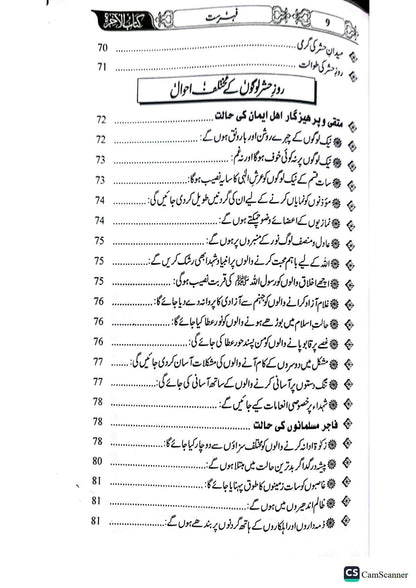 کتاب الآخرۃ فہرست 9
میدانِ حشر کی گرمی 70
روزِ حشر کی طوالت 71
روزِ حشر لوگوں کے مختلف احوال
متقی و پرھیزگار اھل ایمان کی حالت 72
نیک لوگوں کے چہرے روشن اور بارونق ہوں گے: 72
نیک لوگوں پر نہ کوئی خوف ہوگا اور نہ غم: 73
سات قسم کے نیک لوگوں کو عرشِ الٰہی کا سایہ نصیب ہوگا: 73
مؤذنوں کو نمایاں کرنے کے لیے ان کی گردنیں طویل کردی جائیں گی: 74
نمازیوں کے اعضائے وضو چمکتے ہوں گے: 74
عادل و منصف لوگ نور کے منبروں پر ہوں گے: 75
اللہ کے لیے باہم محبت کرنے والوں پر انبیا و شہدا بھی رشک کریں گے: 75
اچھے اخلاق والوں کو رسول اللہ ﷺ کی قربت نصیب ہوگی: 75
غلام آزاد کرانے والوں کو جہنم سے آزادی کا پروانہ دے دیا جائے گا: 76
حالتِ اسلام میں بوڑھے ہونے والوں کو نور عطا کیا جائے گا: 76
غصے پر قابو پانے والوں کو من پسند حور عطا کی جائے گی: 76
مشکل میں دوسروں کے کام آنے والوں کی مشکلات آسان کردی جائیں گی: 77
تنگ دستوں پر آسانی کرنے والوں کے ساتھ آسانی کی جائے گی: 77
شہداء پر خصوصی انعامات کیے جائیں گے: 78
فاجر مسلمانوں کی حالت 78
زکوٰۃ ادا نہ کرنے والوں کو مختلف سزاؤں سے دوچار کیا جائے گا: 78
پیشہ ور گداگر بدترین حالت میں مبتلا ہوں گے: 80
غاصبوں کو سات زمینوں کا طوق پہنایا جائے گا: 81
ظالم اندھیروں میں ہوں گے: 81
ذمہ داروں اور اہلکاروں کے ہاتھ گردنوں پر بندھے ہوں گے: 81
CS CamScanner